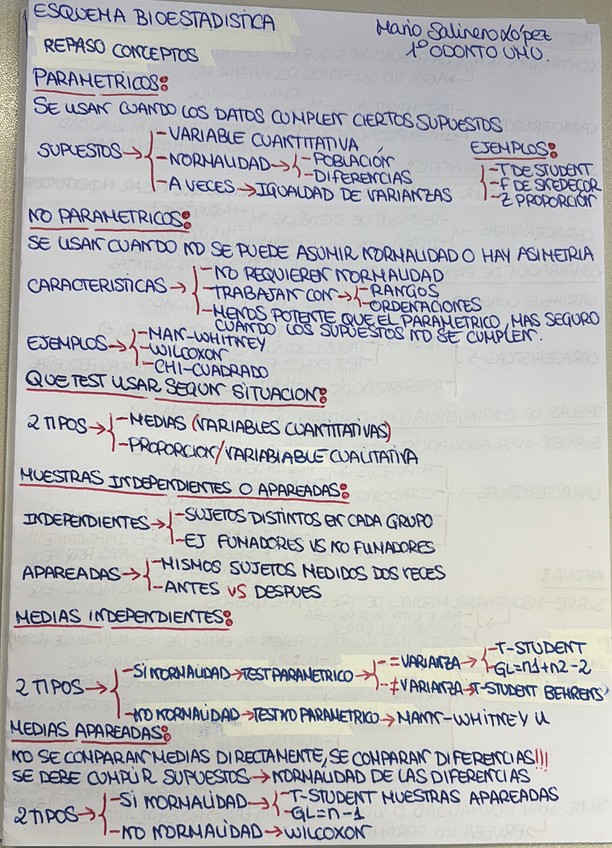 ESQUEMA BIOESTADISTICA
Mario Salinero López
1º ODONTO UMU
REPASO CONCEPTOS
PARAMETRICOS:
SE USAN CUANDO LOS DATOS CUMPLEN CIERTOS SUPUESTOS
SUPUESTOS→
-VARIABLE CUANTITATIVA
-NORMALIDAD→
-POBLACIÓN
-DIFERENCIAS
-A VECES→IGUALDAD DE VARIANZAS
EJEMPLOS:
-T DE STUDENT
-F DE SNEDECOR
-Z PROPORCIÓN
NO PARAMETRICOS:
SE USAN CUANDO NO SE PUEDE ASUMIR NORMALIDAD O HAY ASIMETRIA
CARACTERISTICAS→
-NO REQUIEREN NORMALIDAD
-TRABAJAN CON→
-RANGOS
-ORDENACIONES
-MENOS POTENTE QUE EL PARAMETRICO, MAS SEGURO
CUANDO LOS SUPUESTOS NO SE CUMPLEN.
EJEMPLOS→
-MAN-WHITNEY
-WILCOXON
-CHI-CUADRADO
QUE TEST USAR SEGUN SITUACION:
2 TIPOS→
-MEDIAS (VARIABLES CUANTITATIVAS)
-PROPORCION/VARIABIABLE CUALITATIVA
MUESTRAS INDEPENDIENTES O APAREADAS:
INDEPENDIENTES→
-SUJETOS DISTINTOS EN CADA GRUPO
-EJ FUMADORES VS NO FUMADORES
APAREADAS→
-MISMOS SUJETOS MEDIDOS DOS VECES
-ANTES VS DESPUES
MEDIAS INDEPENDIENTES:
2 TIPOS→
-SI NORMALIDAD→TEST PARAMETRICO→
-=VARIANZA→
-T-STUDENT
-GL=n1+n2-2
-≠VARIANZA→T-STUDENT BEHRENS
-NO NORMALIDAD→TEST NO PARAMETRICO→MANN-WHITNEY U
MEDIAS APAREADAS:
NO SE COMPARAN MEDIAS DIRECTAMENTE, SE COMPARAN DIFERENCIAS!!!
SE DEBE CUMPLIR SUPUESTOS→NORMALIDAD DE LAS DIFERENCIAS
2 TIPOS→
-SI NORMALIDAD→
-T-STUDENT MUESTRAS APAREADAS
-GL=n-1
-NO NORMALIDAD→WILCOXON